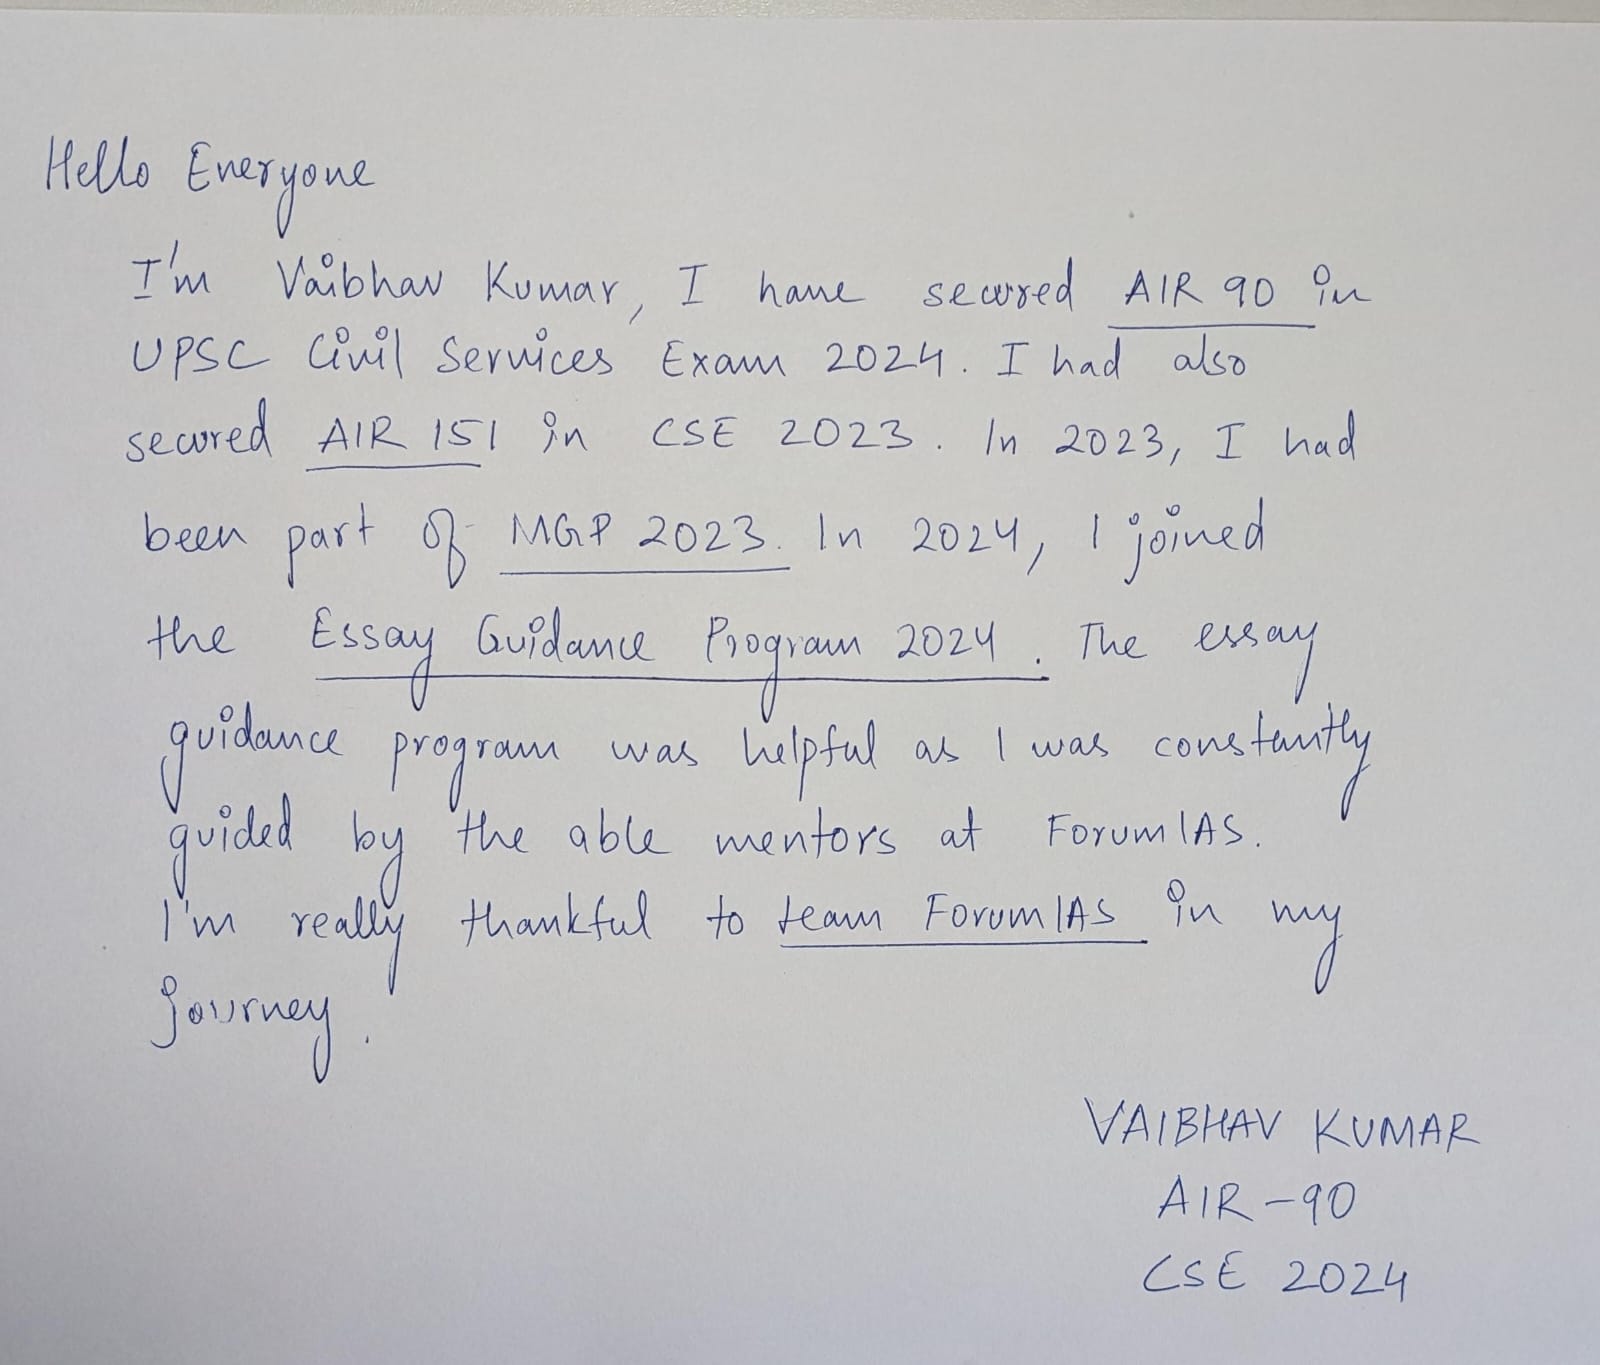 Hello Everyone
I'm Vaibhav Kumar, I have secured AIR 90 in
UPSC Civil Services Exam 2024. I had also
secured AIR 151 in CSE 2023. In 2023, I had
been part of MGP 2023. In 2024, I joined
the Essay Guidance Program 2024. The essay
guidance program was helpful as I was constantly
guided by the able mentors at ForumIAS.
I'm really thankful to team ForumIAS in my
journey.
VAIBHAV KUMAR
AIR-90
CSE 2024